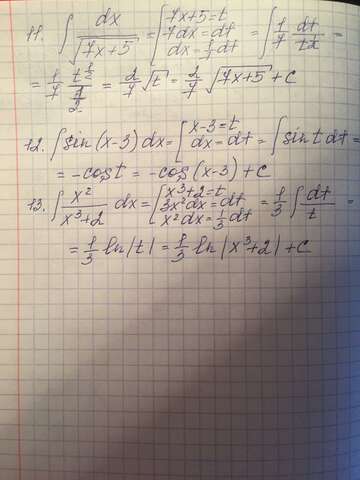 11. ∫ dx/√(7x+5) = [7x+5=t; 7dx=dt; dx=1/7 dt] = ∫ 1/7 dt/t^(1/2) =
= 1/7 t^(1/2)/(1/2) = 2/7 √t = 2/7 √(7x+5) + C
12. ∫ sin(x-3)dx = [x-3=t; dx=dt] = ∫ sin t dt =
= -cos t = -cos(x-3)+C
13. ∫ x²/(x³+2) dx = [x³+2=t; 3x²dx=dt; x²dx=1/3 dt] = 1/3 ∫ dt/t =
= 1/3 ln|t| = 1/3 ln|x³+2|+C